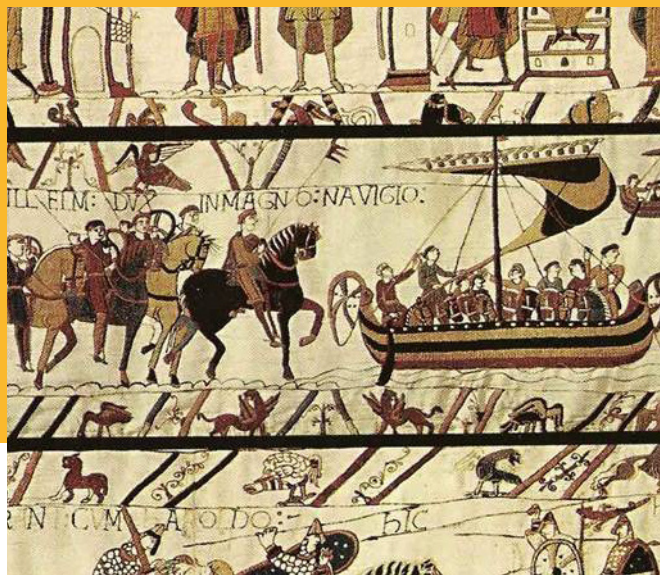 ILLELM: DUX IN MAGNO: NAVIGIO:
RNT: CVM hAROLDO: hIC